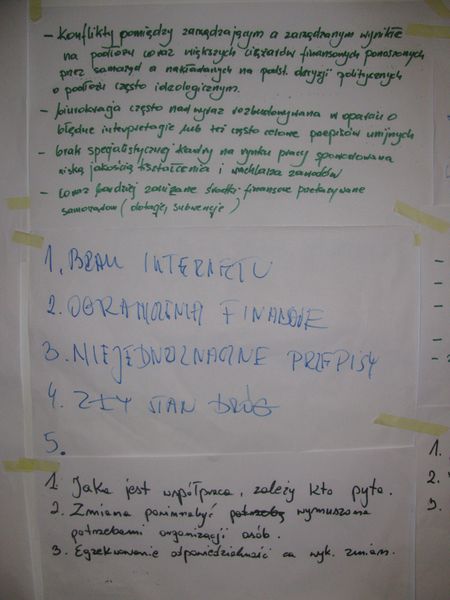 - Konflikty pomiędzy zarządzającym a zarządzanym wynikłe
na podłożu coraz większych ciężarów finansowych ponoszonych
przez samorząd a nakładanych na podst. decyzji politycznych
o podłożu często ideologicznym.
- biurokracja często nad wyraz rozbudowywana w oparciu o
błędne interpretacje lub też często celowe przepisów unijnych
- brak specjalistycznej kadry na rynku pracy spowodowana
niską jakością kształcenia i wachlarza zawodów
- coraz bardziej zaniżane środki finansowe przekazywane
samorządom (dotacje, subwencje)
1. BRAK INTERNETU
2. OGRANICZENIA FINANSOWE
3. NIEJEDNOZNACZNE PRZEPISY
4. ZŁY STAN DRÓG
5.
1. Jaka jest współpraca, zależy kto pyta.
2. Zmiana powinna być potrzebą wymuszona
potrzebami organizacji osób.
3. Egzekwowanie odpowiedzialność za wyk. zmian.
1.
2.
3.